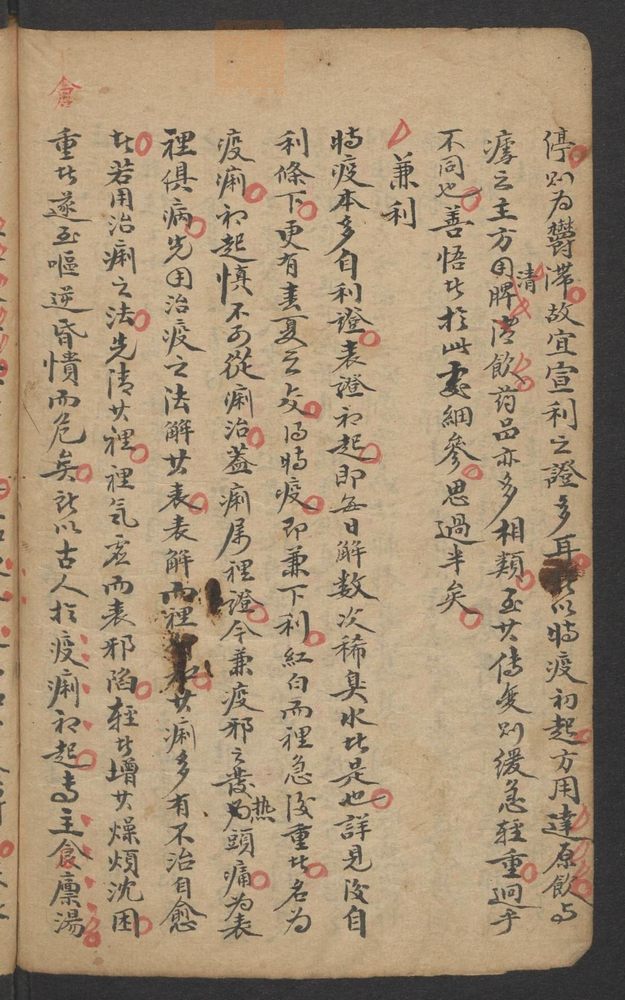 停则为鬱滞故宜宣利之證多耳所以時疫初起方用達原飲与
瘧之主方用清脾飲药品亦多相類至其傳变则缓急輕重迥乎
不同也善悟者於此處細參思過半矣
兼利
時疫本多自利證表證初起即每日解数次稀臭水者是也詳見後自
利條下更有春夏之交得時疫即兼下利紅白而裡急後重者名為
疫痢初起慎不可從痢治盖痢属裡證今兼疫邪之發熱頭痛為表
裡俱病先用治疫之法解其表表解而裡自和其痢多有不治自愈
者若用治痢之法先清其裡裡気虚而表邪陷輕者增其燥煩沈困
重者遂至嘔逆昏憒而危矣所以古人於疫痢初起专主倉廪湯
倉